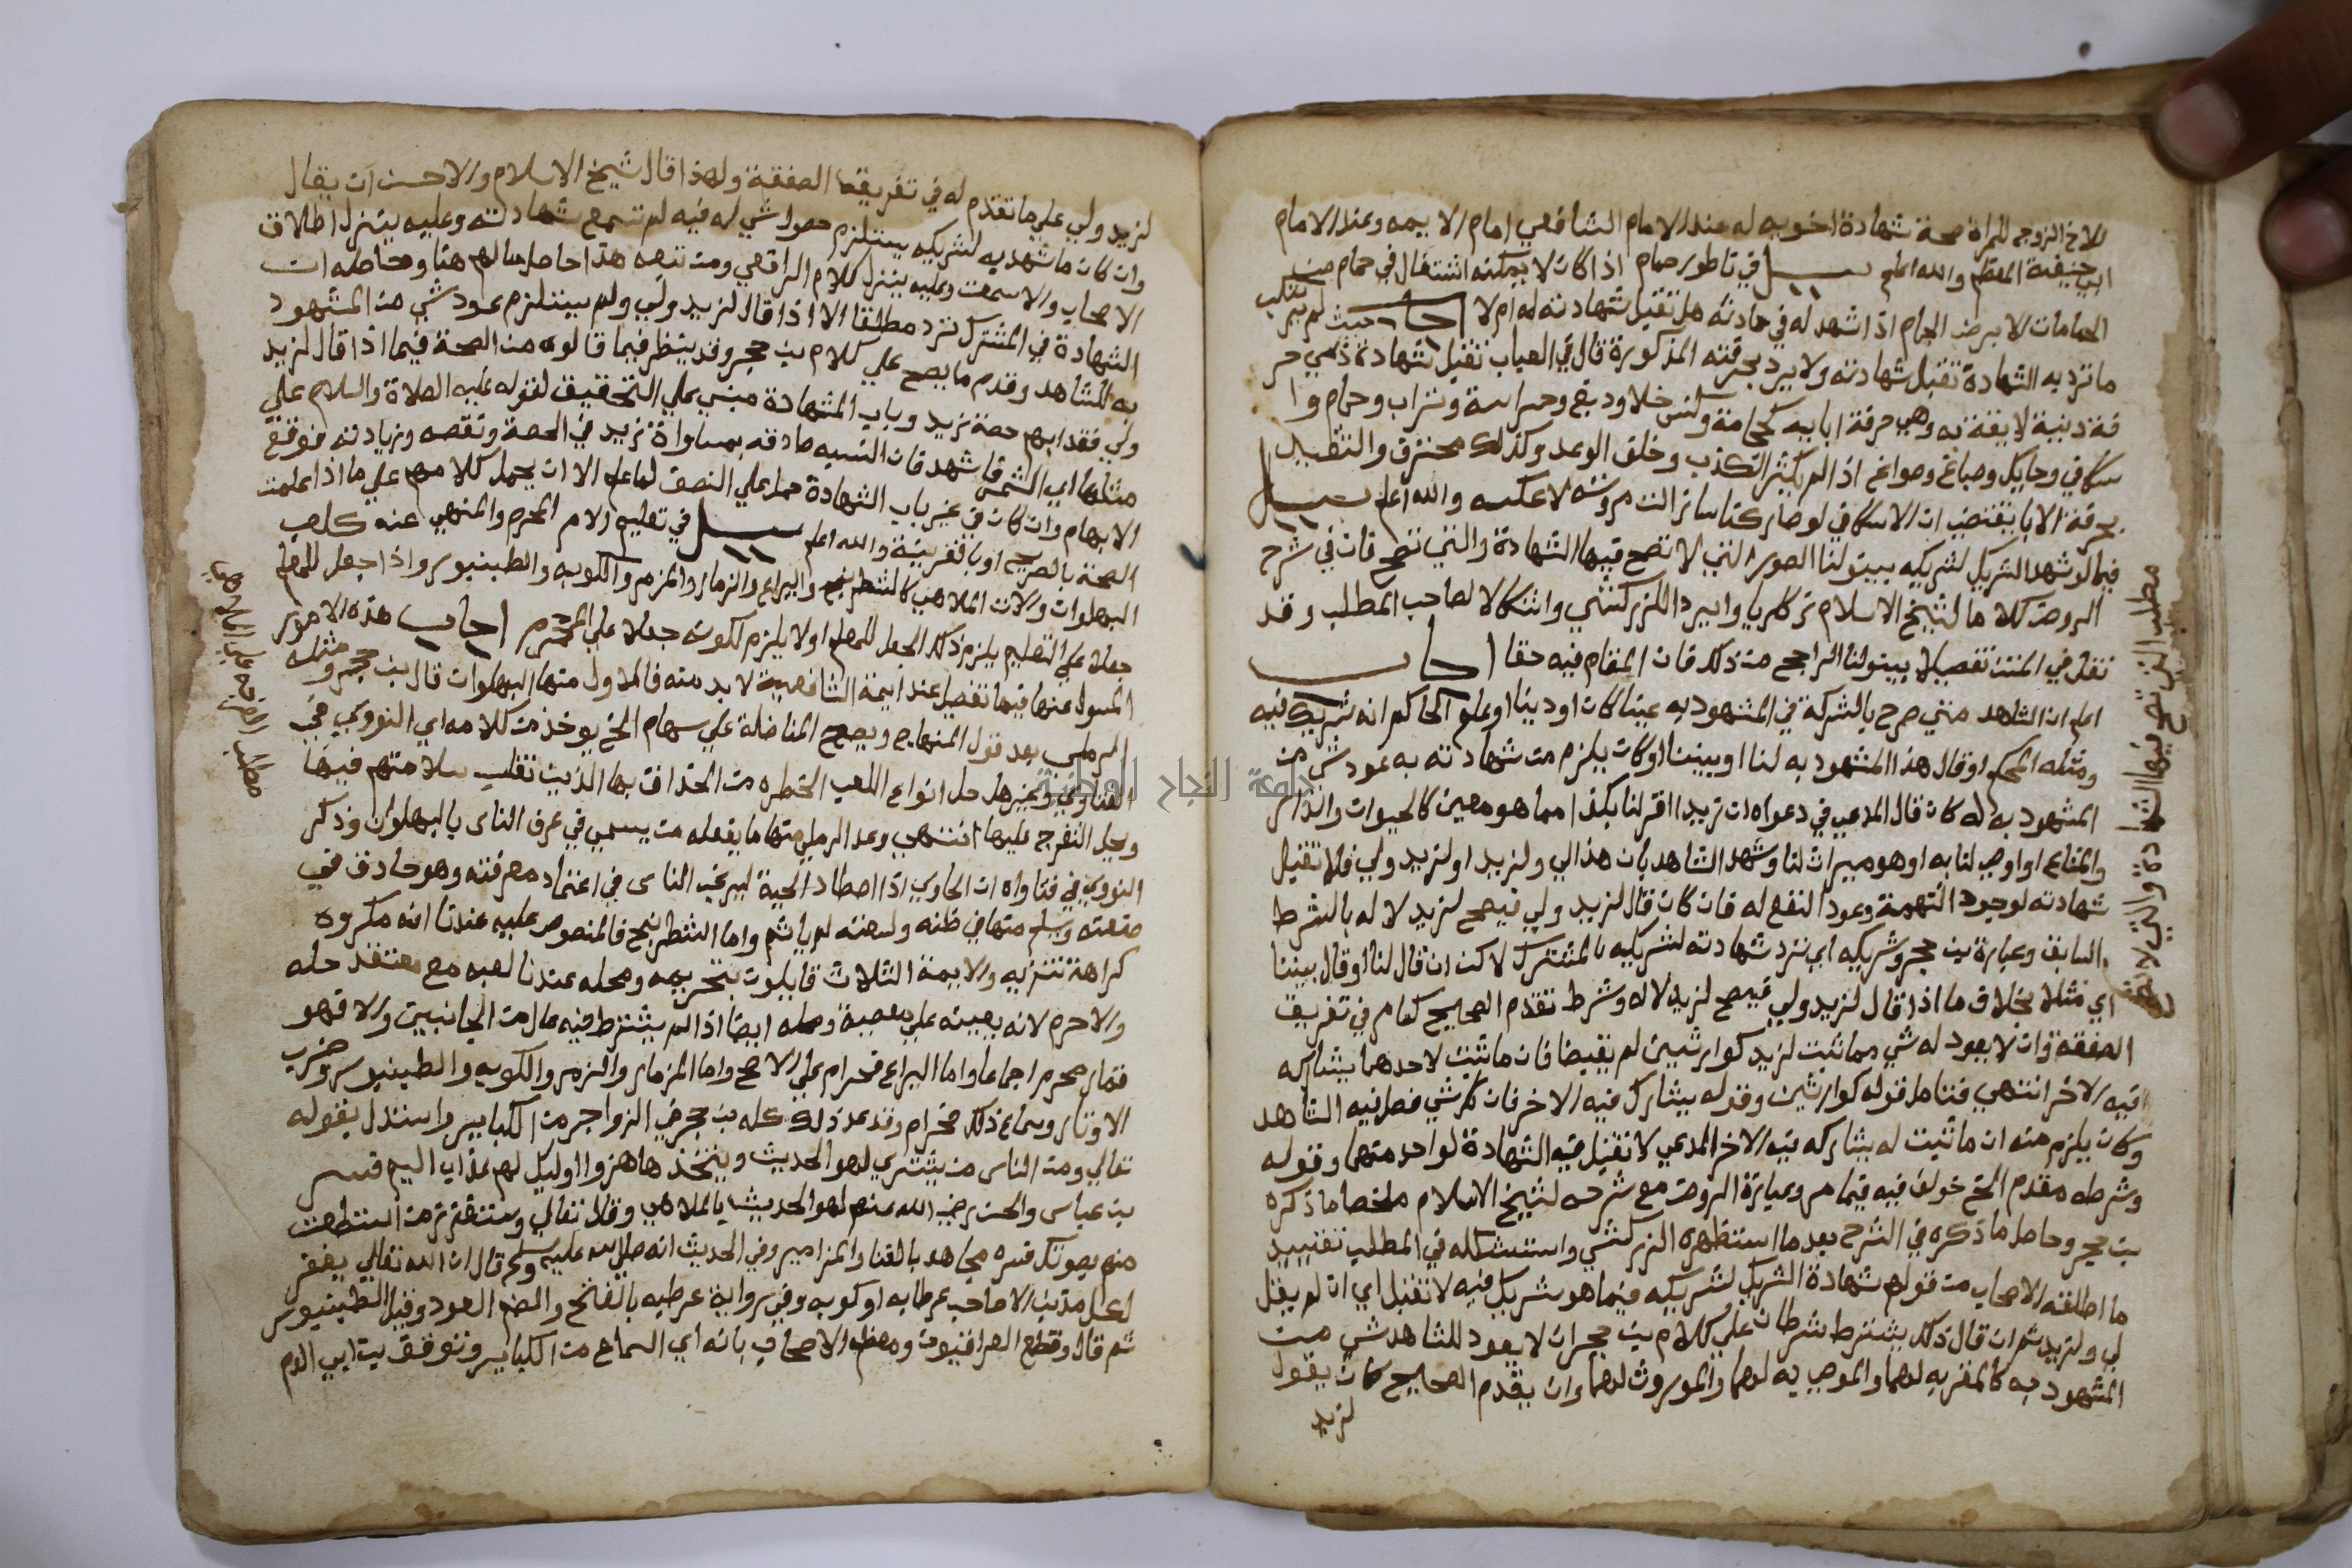 للاخ الزوج للمراة صحة شهادة اخويه له عند الامام الشافعي امام الايمه وعند الامام
ابي حنيفة المعظم والله اعلم سيل في ناطور حمام اذا كان لا يمكنه اشتغال في حمام من
الحمامات الا برضى اذا شهد له في حادثة هل تقبل شهادته له ام لا اجاب حيث لم
ما ترد به الشهادة تقبل شهادته ولا يرد بحرفته المذكورة قال في العباب تقبل شهادة ذي حر
فة دنية لايقة به وهي حرفة ابايه كحجامة وكنس خلا ودبغ وحراسة وتراب وحمام وا
سكافي وحايك وصباغ وصواغ اذا لم يكثر الكذب وخلف الوعد وكذلك محترف والتقييد
بحرفة الابا يقتضي ان الاسكافي لو صار كناسا زالت مروته لا عكسه والله اعلم سيل
فيما لو شهد الشريك لشريكه بينوا لنا الصور التي لا تصح فيها الشهادة والتي تصح فان في شرح
الروض كلاما لشيخ الاسلام زكريا وايرد الزركشي واشكالا لصاحب المطلب وقد
نقل في المتن تفصيلا بينوا لنا الراجح من ذلك فان المقام فيه خفا اجاب
اعلم ان الشاهد متي صرح بالشركة في المشهود به عينا كان او دينا او علم الحاكم انه شريك فيه
ومثله المحكم او قال هذا المشهود به لنا او بيننا او كان يلزم من شهادته به عود شي من
المشهود به له كان قال المدعي في دعواه ان زيدا اقر لنا بكذا مما هو معين كالحيوان والدار
والمتاع او اوصى لنا به او هو ميراث لنا وشهد الشاهد بان هذا لي ولزيد او لزيد ولي فلا تقبل
شهادته لوجود التهمة وعود النفع له فان كان قال لزيد ولي فيصح لزيد لا له بالشرط
السابق وعبارة بن حجر وشريكه اي ترد شهادته لشريكه بالمشترك لاكن ان قال لنا او قال بيننا
اي مثلا بخلاف ما اذا قال لزيد ولي فيصح لزيد لا له وشرط تقدم الصحيح كما مر في تفريق
الصفقة وان لا يعود له شي مما ثبت لزيد كوارثين لم يقبضا فان ما ثبت لاحدهما يشاركه
فيه الاخر انتهي فتامل قوله كوارثين وقوله يشارك فيه الاخر فان كل شي فصل فيه الشاهد
وكان يلزم منه ان ما ثبت له يشاركه فيه الاخر المدعي لا تقبل فيه الشهادة لواحد منهما وقوله
وشرطه مقدم الخ خولف فيه فيما مر وعبارة الروض مع شرحه لشيخ الاسلام ملخصا ما ذكره
بن حجر وحاصل ما ذكره في الشرح بعد ما استظهره الزركشي واستشكله في المطلب تقييد
ما اطلقه الاصحاب من قولهم شهادة الشريك لشريكه فيما هو شريك فيه لا تقبل اي ان لم يقل
لي ولزيد ثم ان قال ذلك يشترط شرطان علي كلام بن حجر ان لا يعود للشاهد شي من
المشهود به كالمقر به لهما والموصى به لهما والموروث لهما وان يقدم الصحيح كان يقول
لزيد
مطلب التي تصح فيها الشهادة والتي لا تصح
لزيد ولي علي ما تقدم له في تفريق الصفقة ولهذا قال شيخ الاسلام والاحسن ان يقال
وان كان ما شهد به لشريكه يستلزم حصول شي له فيه لم تسمع شهادته وعليه ينزل اطلاق
الاصحاب والا سمعت وعليه ينزل كلام الرافعي ومن تبعه هذا حاصل مالهم هنا وحاصله ان
الشهادة في المشترك ترد مطلقا الا اذا قال لزيد ولي ولم يستلزم عود شي من المشهود
به للشاهد وقدم ما يصح علي كلام بن حجر وقد ينظر فيما قالوه من الصحة فيما اذا قال لزيد
ولي فقد ابهم حصة زيد وباب الشهادة مبني علي التحقيق لقوله عليه الصلاة والسلام علي
مثلها اي الشمس فاشهد فان النسبه صادقه بمساواة زيد في الحصة ونقصه وزيادته فوقع
الابهام وان كان في غير باب الشهادة حمل علي النصف لما علم الا ان يحمل كلامهم علي ما اذا علمت
الصحة بالصريح او بالقرينة والله اعلم سيل في تعليم زلام المحرم والمنهي عنه كلعب
البهلوان والات الملاهي كالشطرنج واليراع والزمار والمزمر والكوبه والطنبور واذا جعل للمعلم
جعلا علي التعليم يلزم ذلك الجعل للمعلم او لا يلزم لكونه جعلا علي المحرم اجاب هذه الامور
المسول عنها فيها تفصيل عند ايمة الشافعية لا بد منه فالاول منها البهلوان قال بن حجر ومثله
الرملي بعد قول المنهاج ويصح المناضلة علي سهام الخ يوخذ من كلامه اي النووي في
الفتاوي وغيرها حل انواع اللعب الخطره من الحذاق بها الذين تغلب سلامتهم فيها
ويحل التفرج عليها انتهي وعد الرملي منها ما يفعله من يسمي في عرف الناس بالبهلوان وذكر
النووي في فتاواه ان الحاوي اذا اصطاد الحية ليرغب الناس في اعتماد معرفته وهو حاذق في
صنعته وسلم منها في ظنه ولسعته لم ياثم واما الشطرنج فالمنصوص عليه عندنا انه مكروه
كراهة تنزيه والايمة الثلاث قايلون بتحريمه ومحله عندنا لعبه مع معتقد حله
والا حرم لانه يعينه علي معصية ومحله ايضا اذا لم يشترط فيه مال من الجانبين والا فهو
قمار محرم اجماعا واما اليراع فحرام علي الاصح واما المزمار والزمر والكوبه والطنبور وضرب
الاوتار وسماع ذلك فحرام وقد عد ذلك كله بن حجر في الزواجر من الكباير واستدل بقوله
تعالي ومن الناس من يشتري لهو الحديث ويتخذها هزوا اوليك لهم عذاب اليم فسر
بن عباس والحسن رضي الله عنهم لهو الحديث بالملاهي وقال تعالي واستفزز من استطعت
منهم بصوتك فسره مجاهد بالغنا والمزامير وفي الحديث انه صلى الله عليه وسلم قال ان الله تعالي يغفر
لكل مذنب الا صاحب عرطابه او كوبه وفي رواية عرطبه بالفتح والضم العود وقيل الطنبور
ثم قال وقطع العراقيون ومعظم الاصحاب بانه اي السماع من الكباير وتوقف بن ابي الدم
جامعة النجاح الوطنية